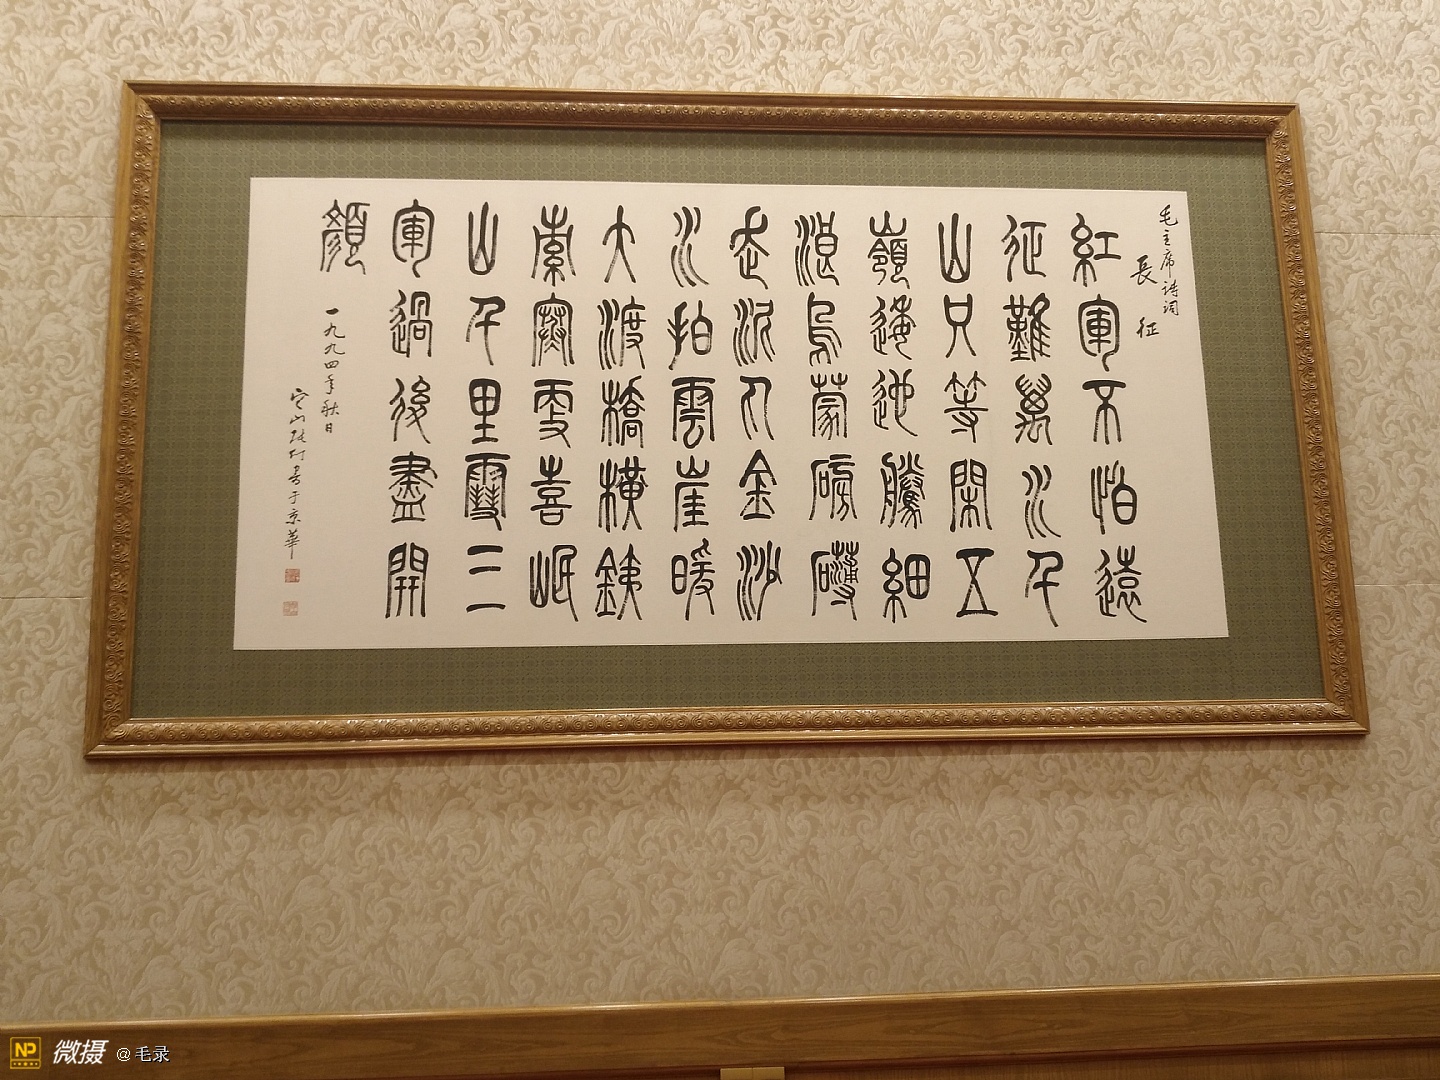 毛主席诗词
長征
紅軍不怕遠
征難萬水千
山只等閑五
嶺逶迤騰細
浪烏蒙磅礴
走泥丸金沙
水拍雲崖暖
大渡橋橫鐵
索寒更喜岷
山千里雪三
軍過後盡開
顏
一九九四年秋日
山书于京華
微摄 @毛录
NP